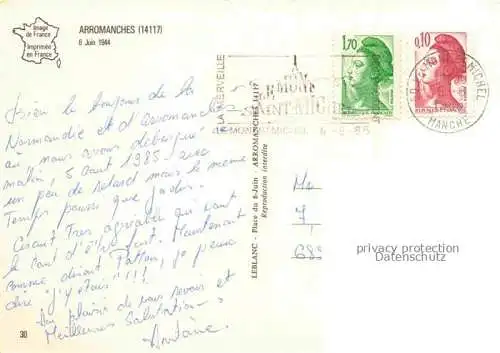 Image
de France
Imprimée
en France
ARROMANCHES (14117)
6 Juin 1944
1,70
0,10
LA MERVEILLE
LE MONT
SAINT-MICHEL
LE MONT ST MICHEL
MICHEL
MANCHE
Bien le bonjour de la
Normandie et d'arromanches
où nous avons débarqué
matin, 5 août 1985 avec
un peu de retard mais le même
Temps pourri que jadis.
Circuit Très agréable qui vaut
le coup d'être fait. Maintenant
comme dirait Patton, je peux
dire "j'y étais"!!!
Au plaisir de vous revoir et
Meilleures Salutations
Antoine.
LEBLANC - Place du 6-Juin - ARROMANCHES (14117)
Reproduction interdite
Mo
7,
688
privacy protection
Datenschutz
30